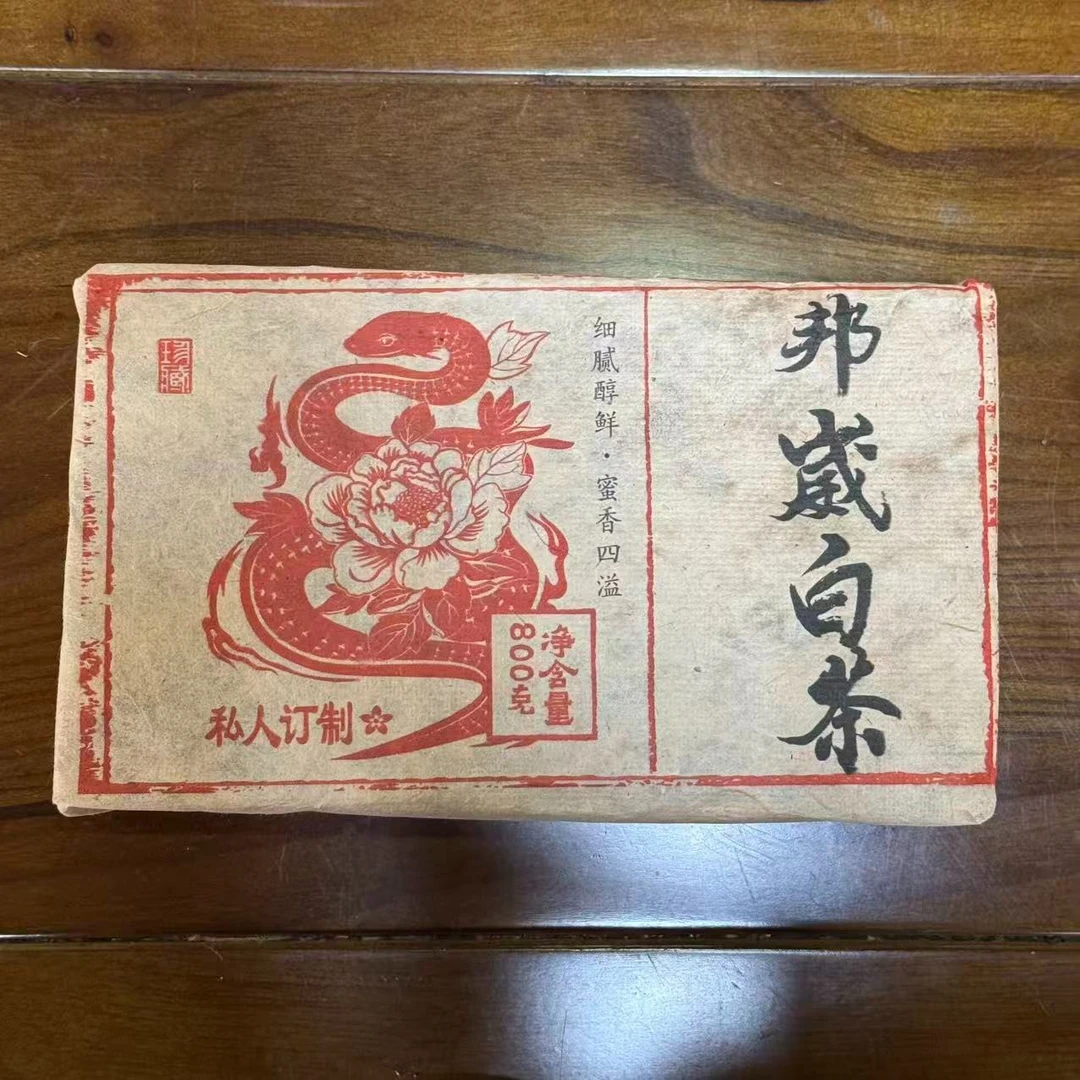 邦崴白茶
细腻醇鲜·蜜香四溢
珍藏
净含量
800克
私人订制